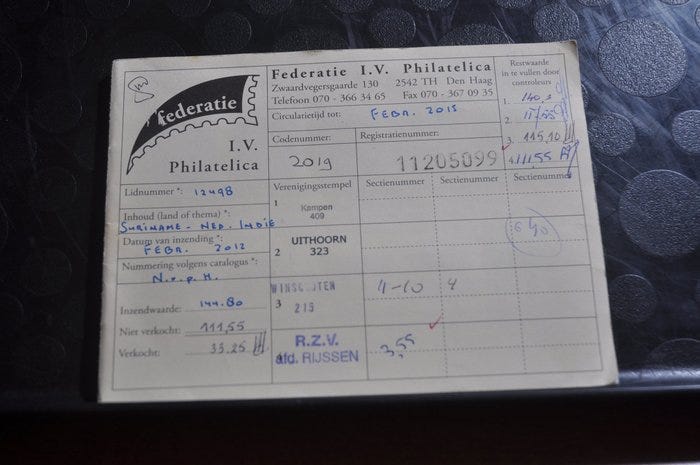 federatie
I.V.
Philatelica
Federatie I.V. Philatelica
Zwaardvegersgaarde 130 2542 TH Den Haag
Telefoon 070 - 366 34 65 Fax 070 - 367 09 35
Circulatietijd tot: FEBR. 2015
Codenummer: Registratienummer:
2019 11205099
Restwaarde
in te vullen door
controleurs
1.
2.
3. 115,10
4. 111,55
Lidnummer *: 12498
Inhoud (land of thema) *:
SURINAME - NED. INDIE
Datum van inzending *:
FEBR. 2012
Nummering volgens catalogus *:
N.v.p.H.
Inzendwaarde: 144.80
Niet verkocht: 111,55
Verkocht: 33.25
Verenigingsstempel Sectienummer Sectienummer Sectienummer
1 Kampen
409
2 UITHOORN
323
WINSCHOTEN
3 215
4-10 4
R.Z.V.
afd. RIJSSEN
3,55